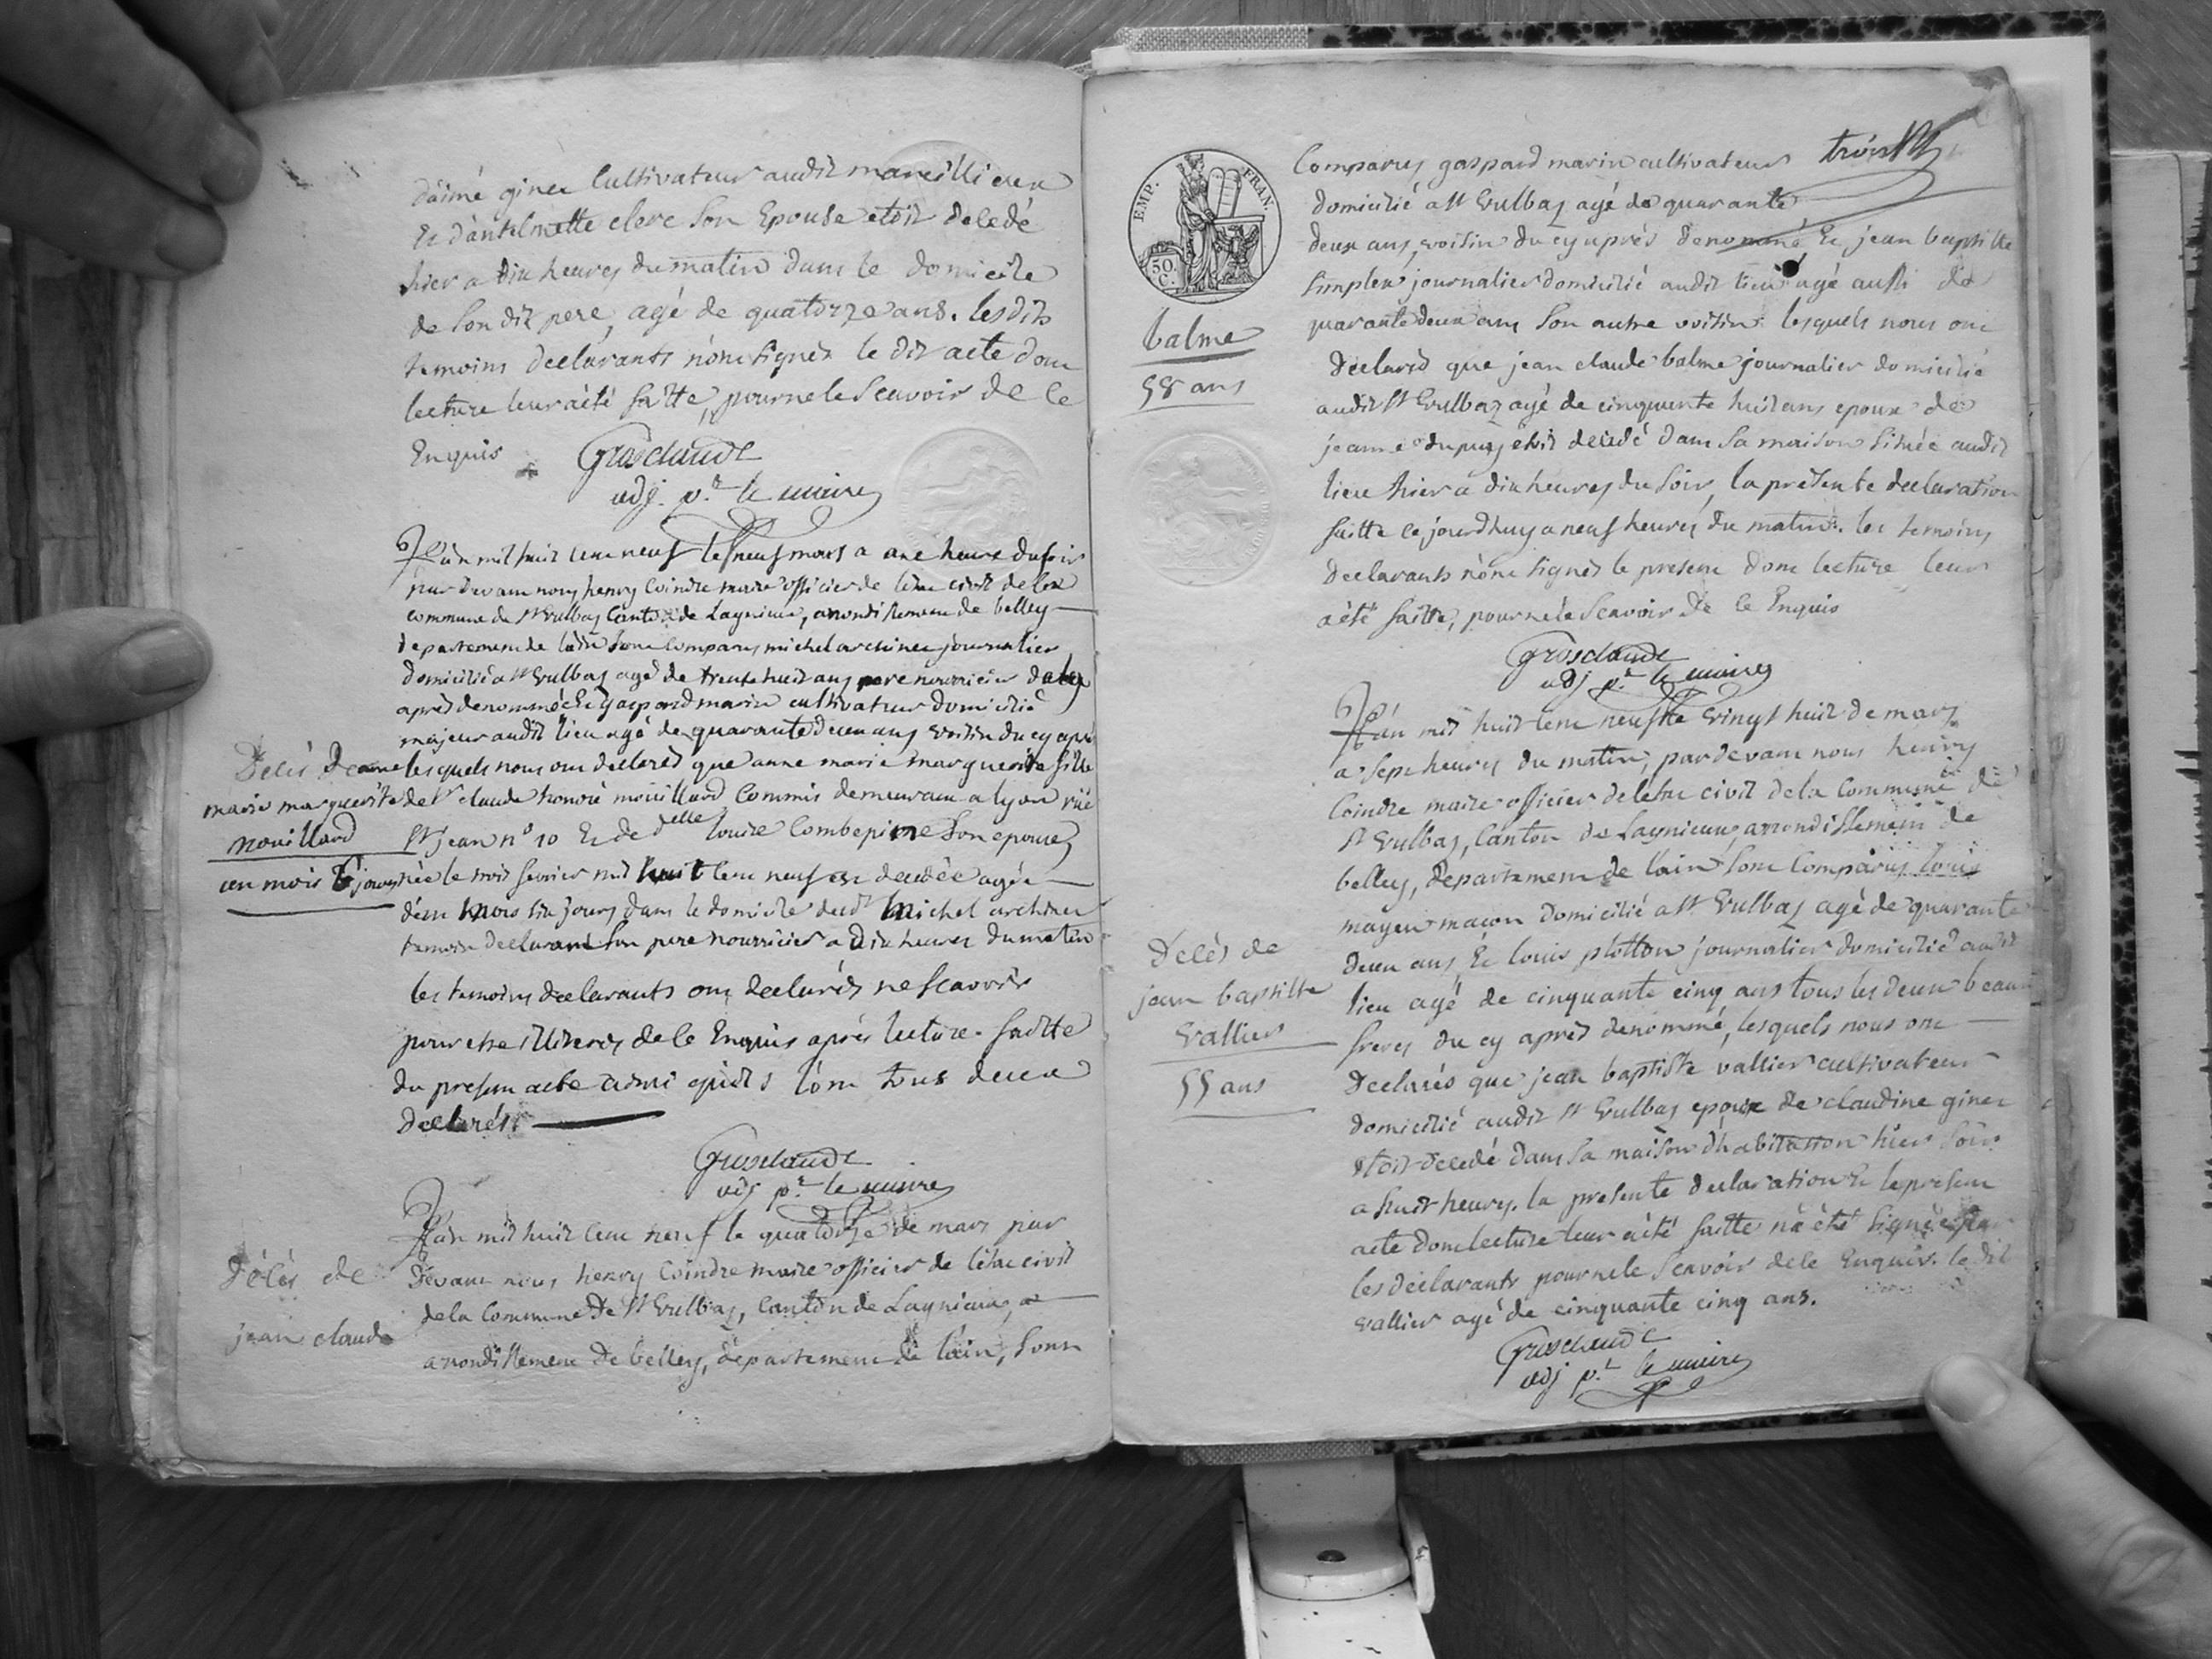 d'aimé ginet Cultivateur audit marcillieux
Et d'antelmette clerc son Epouse etoit decedé
hier a dix heures du matin dans le domicile
de son dit pere, agé de quatorze ans. les dits
temoins declarants n'ont signés le dit acte dont
lecture leur à été faitte, pour ne le scavoir de ce
Enquis
Grosclaude
adj. pr. le maire
L'an mil huit cent neuf le neuf mars a une heure du soir
par devant nous henry Coindre maire officier de l'etat civil de la
commune de St Vulbas Canton de Lagnieux, arrondissement de belley
departement de l'ain sont comparus michel archinet journalier
domicilié a St Vulbas agé de trente huit ans pere nourricier de la cy
après denommée Et gaspard marin cultivateur domicilié
majeur audit lieu agé de quarante deux ans voisin du cy après
Décès d'anne
marie marguerite
mouillard
un mois 6 jours
lesquels nous ont declarés que anne marie marguerite fille
de Sr claude honoré mouillard Commis demeurant a lyon rüe
St jean n° 10 Et de delle louise Combepine son epouse
née le trois fevrier mil huit cent neuf est decedée agée
d'un mois six jours dans le domicile dudt michel archinet
temoin declarant son pere nourricier a dix heures du matin
les temoins declarants ont declarés ne scavoir
pour etre illiterés de ce Enquis après lecture faitte
du present acte ainsi qu'ils l'ont tous deux
declarés
Grosclaude
adj pr. le maire
Décès de
jean claude
L'an mil huit cent neuf le quatorze de mars par
devant nous henry Coindre maire officier de l'etat civil
de la Commune de St Vulbas, Canton de Lagnieux, a
arrondissement de belley, departement de l'ain, sont
trois
EMP. FRAN.
50. C.
balme
58 ans
Comparus gaspard marin cultivateur
domicilié a St Vulbas agé de quarante
deux ans, voisin du cy après denommé Et jean baptiste
simplex journalier domicilié audit lieu agé aussi de
quarante deux ans son autre voisin lesquels nous ont
declarés que jean claude balme journalier domicilié
audit St Vulbas agé de cinquante huit ans epoux de
jeanne dupuy etoit decedé dans sa maison située audit
lieu hier a dix heures du soir, la presente declaration
faitte ce jourdhuy a neuf heures du matin. les temoins
declarants n'ont signés le present dont lecture leur
a été faitte, pour ne le scavoir de ce Enquis
Grosclaude
adj pr. le maire
Décès de
jean baptiste
vallier
55 ans
L'an mil huit cent neuf le vingt huit de mars
a sept heures du matin, par devant nous henry
Coindre maire officier de l'etat civil de la Commune de
St Vulbas, Canton de Lagnieux, arrondissement de
belley, departement de l'ain sont Comparus louis
mayeu macon domicilié a St Vulbas agé de quarante
deux ans, Et louis plotton journalier domicilié audit
lieu agé de cinquante cinq ans tous les deux beaux
freres du cy après denommé, lesquels nous ont
declarés que jean baptiste vallier cultivateur
domicilié audit St Vulbas epoux de claudine ginet
etoit decedé dans sa maison d'habitation hier soir
a huit heures. la presente declaration Et le present
acte dont lecture leur a été faitte n'a été signée par
les declarants pour ne le scavoir de ce Enquis. le dit
vallier agé de cinquante cinq ans.
Grosclaude
adj pr. le maire